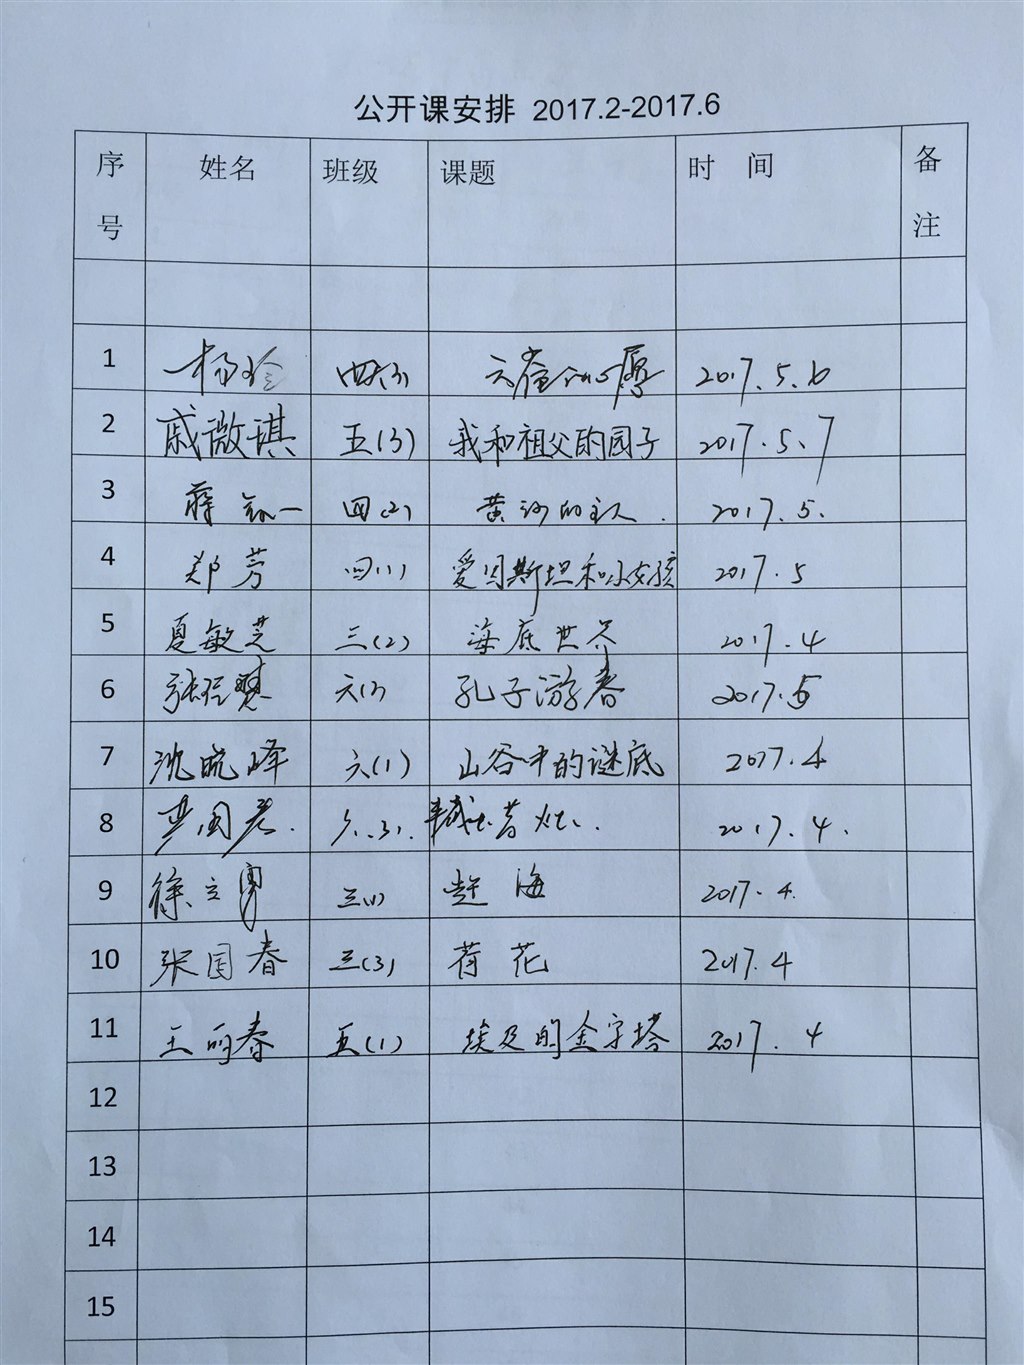 公开课安排 2017.2-2017.6
序号 姓名 班级 课题 时 间 备注
1 杨玲 四(3) 云雀的心愿 2017.5.6
2 戚微琪 五(3) 我和祖父的园子 2017.5.7
3 蒋 一 四(2) 黄河的主人. 2017.5.
4 郑芳 四(1) 爱因斯坦和小女孩 2017.5
5 夏敏芝 三(2) 海底世界 2017.4
6 张 六(2) 孔子游春 2017.5
7 沈晓峰 六(1) 山谷中的谜底 2017.4
8 国 2017.4.
9 徐立勇 三(1) 赶海 2017.4.
10 张国春 三(3) 荷花 2017.4
11 王丽春 五(1) 埃及的金字塔 2017.4
12
13
14
15